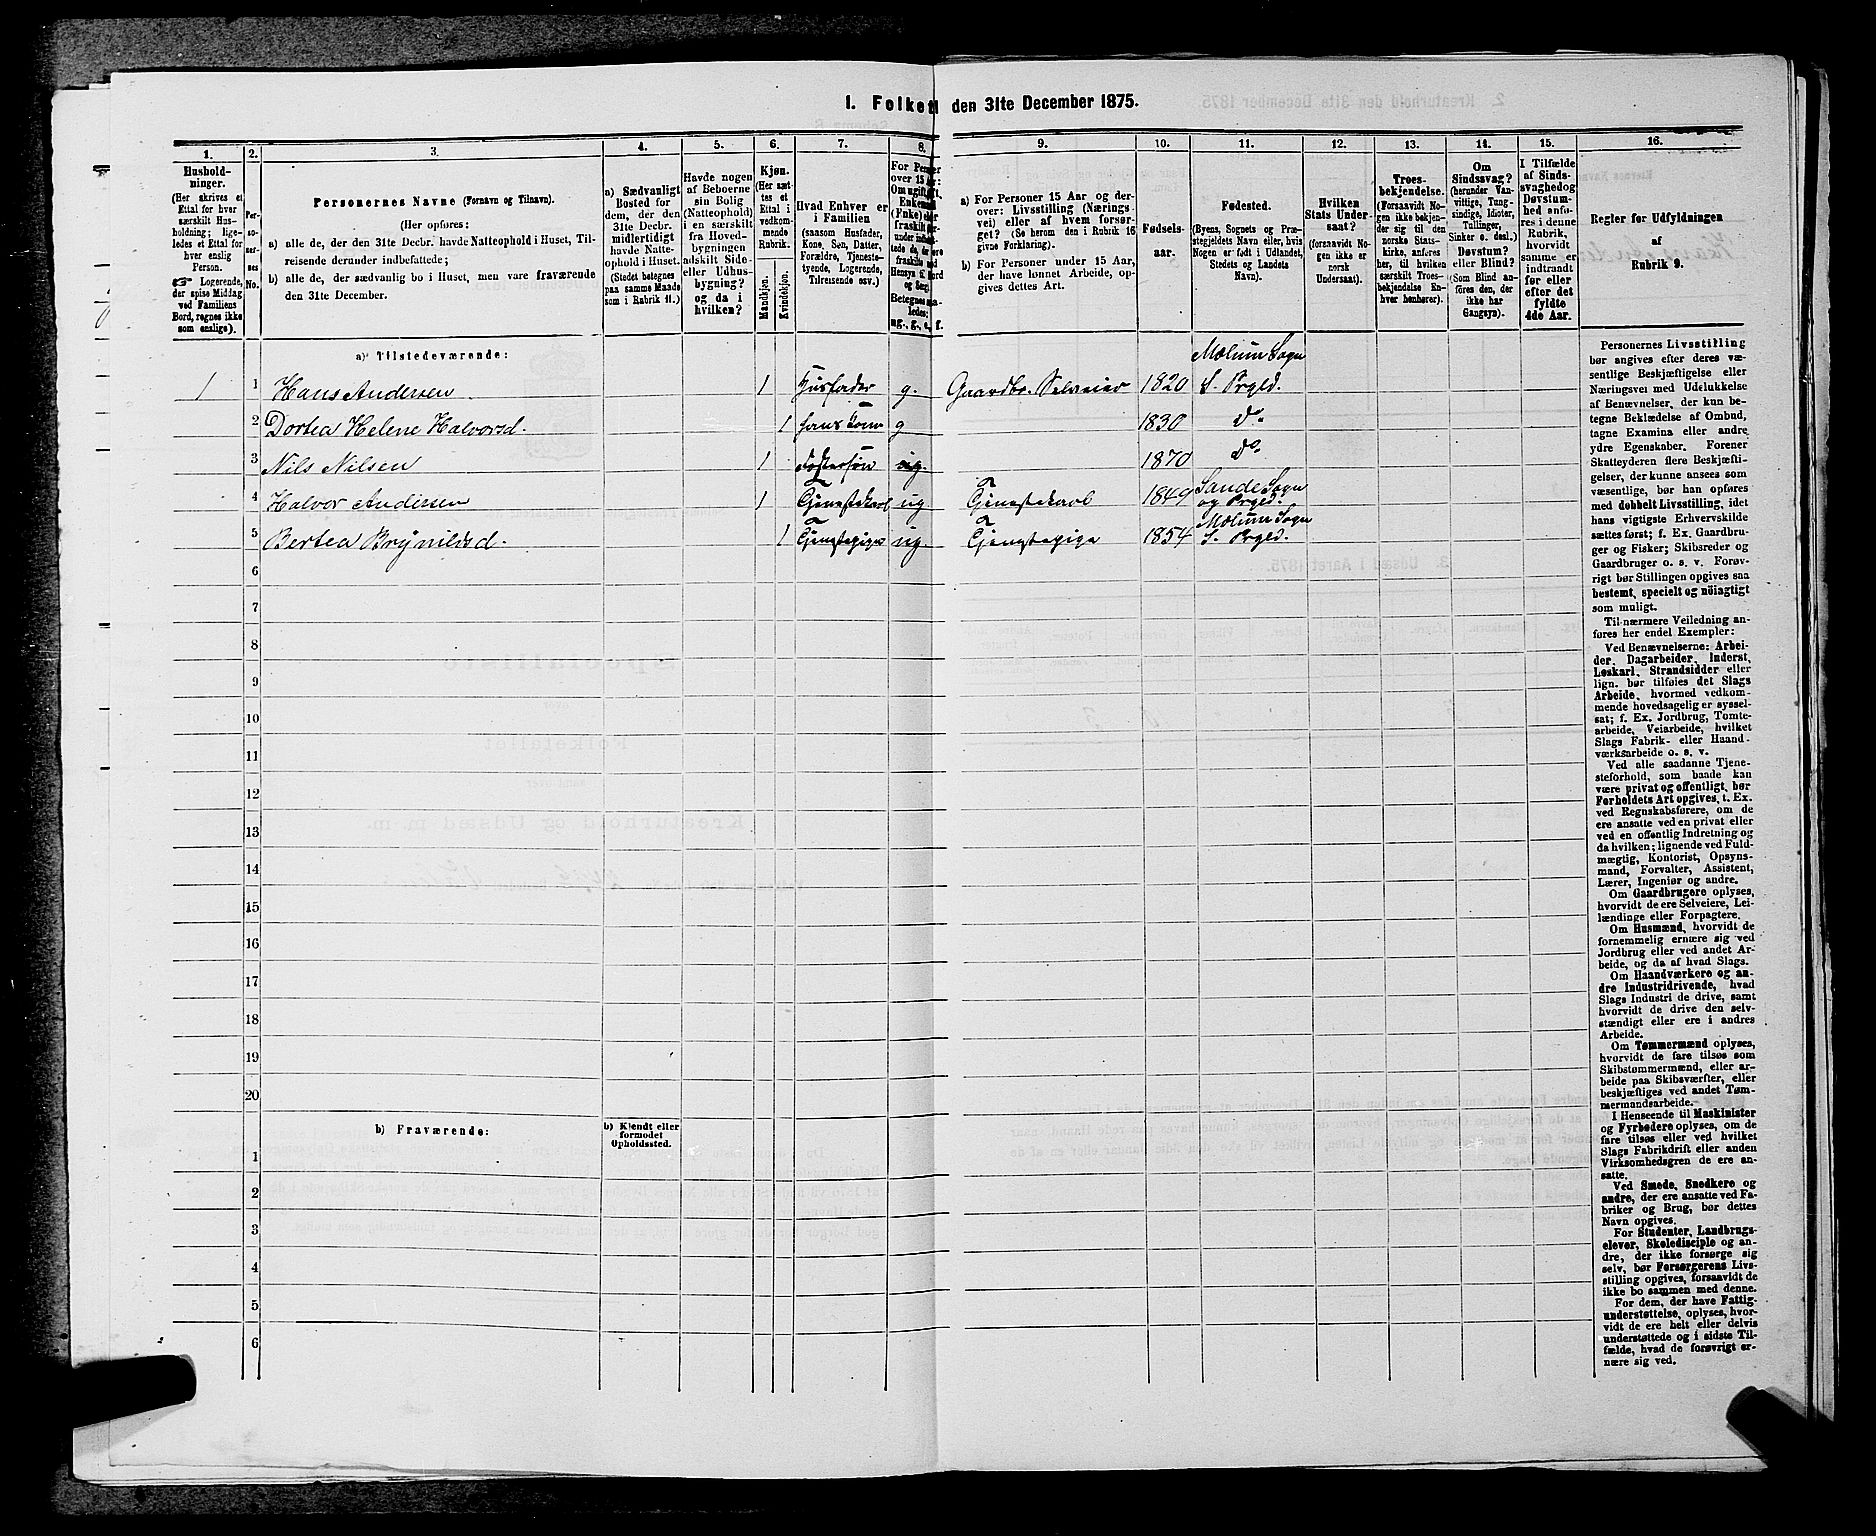 1. Folket den 31te December 1875.
1. 2. 3. 4. 5. 6. 7. 8. 9. 10. 11. 12. 13. 14. 15. 16.
Hushold-
ninger.
(Her skrives et
Ettal for hver
særskilt Hus-
holdning; lige-
ledes et Ettal for
hver enslig
Person.
☞ Logerende,
der spise Middag
ved Familiens
Bord, regnes ikke
som enslige).
Per-
so-
ner-
nes
No.
Personernes Navne (Fornavn og Tilnavn).
(Her opføres:
a) alle de, der den 31te Decbr. havde Natteophold i Huset, Til-
reisende derunder indbefattede;
b) alle de, der sædvanlig bo i Huset, men vare fraværende
den 31te December.
a) Sædvanligt
Bosted for
dem, der den
31te Decbr.
midlertidigt
havde Natte-
ophold i Huset.
(Stedet betegnes
paa samme Maade
som i Rubrik 11.)
Havde nogen
af Beboerne
sin Bolig
(Natteophold)
i en særskilt
fra Hoved-
bygningen
adskilt Side-
eller Udhus-
bygning?
og da i
hvilken?
Kjøn.
(Her sæt-
tes et
Ettal i
vedkom-
mende
Rubrik.
Mandkjøn.
Kvindekjøn.
Hvad Enhver er
i Familien
(saasom Husfader,
Kone, Søn, Datter,
Forældre, Tjeneste-
tyende, Logerende,
Tilreisende osv.)
For Per
over 15
Om ugift
Enke
fraskilt
Hensyn
og Seng
Betegnes
ledes:
ug., g., e., f.
a) For Personer 15 Aar og der-
over: Livsstilling (Nærings-
vei) eller af hvem forsør-
get? (Se herom den i Rubrik 16
givne Forklaring).
b) For Personer under 15 Aar,
der have lønnet Arbeide, op-
gives dettes Art.
Fødsels-
aar.
Fødested.
(Byens, Sognets og Præ-
stegjeldets Navn eller, hvis
Nogen er født i Udlandet,
Stedets og Landets
Navn).
Hvilken
Stats Under-
saat?
(forsaavidt No-
gen ikke er
norsk
Undersaat).
Troes-
bekjendelse.
(Forsaavidt No-
gen ikke bekjen-
der sig til den
norske Stats-
kirke, anføres
her, til hvilken
særskilt Troes-
bekjendelse En-
hver henhører).
Om
Sindssvag?
(herunder Van-
vittige, Tung-
sindige, Idioter,
Tullinger,
Sinker o. desl.)
Døvstum?
eller Blind?
(Som Blind an-
føres den, der
ikke har
Gangsyn).
I Tilfælde
af Sinds-
svaghed og
Døvstum-
hed anfø-
res i denne
Rubrik,
hvorvidt
samme er
indtraadt
før eller
efter det
fyldte
4de Aar.
Regler for Udfyldningen
af
Rubrik 9.
a) Tilstedeværende:
Mælum Sogn
1 1 Hans Andersen 1 Husfader g. Gaardbr. Selveier 1820 S. Prgld.
2 Dortea Helene Halvorsd. 1 hans Kone g 1830 do
3 Nils Nilsen 1 Fostersøn ug. 1870 do
Sande Sogn
4 Halvor Andersen 1 Tjenestekarl ug Tjenestekarl 1849 og Prgld.
Mælum Sogn
5 Bertea Brynildsd. 1 Tjenestepige ug. Tjenestepige 1854 S. Prgld.
6
7
8
9
10
11
12
13
14
15
16
17
18
19
20
b) Fraværende:
b) Kjendt eller
formodet
Opholdssted.
1
2
3
4
5
6
Personernes Livsstilling
bør angives efter deres væ-
sentlige Beskjæftigelse eller
Næringsvei med Udelukkelse
af Benævnelser, der kun be-
tegne Beklædelse af Ombud,
tagne Examina eller andre
ydre Egenskaber. Forener
Skatteyderen flere Beskjæfti-
gelser, der kunne ansees som
væsentlige, bør han opføres
med dobbelt Livsstilling, idet
hans vigtigste Erhvervskilde
sættes først; f. Ex. Gaardbru-
ger og Fisker; Skibsreder og
Gaardbruger o. s. v. Forøv-
rigt bør Stillingen opgives saa
bestemt, specielt og nöiagtigt
som muligt.
Til nærmere Veiledning an-
føres her endel Exempler:
Ved Benævnelserne: Arbei-
der, Dagarbeider, Inderst,
Løskarl, Strandsidder eller
lign. bør tilføies det Slags
Arbeide, hvormed vedkom-
mende hovedsagelig er syssel-
sat; f. Ex. Jordbrug, Tømte-
arbeide, Veiarbeide, hvilket
Slags Fabrik- eller Haand-
værksarbeide o. s. v.
Ved alle saadanne Tjene-
steforhold, som baade kan
være privat og offentligt, bør
Forholdets Art opgives, t. Ex.
ved Regnskabsførere, om de
ere ansatte ved en privat eller
ved en offentlig Indretning og
da hvilken; lignende ved Fuld-
mægtig, Kontorist, Opsyns-
mand, Forvalter, Assistent,
Lærer, Ingeniør og andre.
Om Gaardbrugere oplyses,
hvorvidt de ere Selveiere, Lei-
lændinge eller Forpagtere.
Om Husmænd, hvorvidt de
fornemmelig ernære sig ved
Jordbrug eller ved andet Ar-
beide, og da af hvad Slags.
Om Haandværkere og an-
dre Industridrivende, hvad
Slags Industri de drive, samt
hvorvidt de drive den selv-
stændigt eller ere i andres
Arbeide.
Om Tømmermænd oplyses,
hvorvidt de fare tilsøs som
Skibstømmermænd, eller ar-
beide paa Skibsværfter, eller
beskjæftiges ved andet Tøm-
mermandsarbeide.
I Henseende til Maskinister
og Fyrbødere oplyses, om de
fare tilsøs eller ved hvilket
Slags Fabrikdrift eller anden
Virksomhedsgren de ere an-
satte.
Ved Smede, Snedkere og
andre, der ere ansatte ved Fa-
briker og Brug, bør dettes
Navn opgives.
For Studenter, Landbrugs-
elever, Skoledisciple og an-
dre, der ikke forsørge sig
selv, bør Forsørgerens Livs-
stilling opgives, forsaavidt de
ikke bo sammen med denne.
For dem, der have Fattig-
understøttelse, oplyses, hvor-
vidt de ere helt eller delvis
understøttede og i sidste Til-
fælde, hvad de forøvrigt er-
nære sig ved.